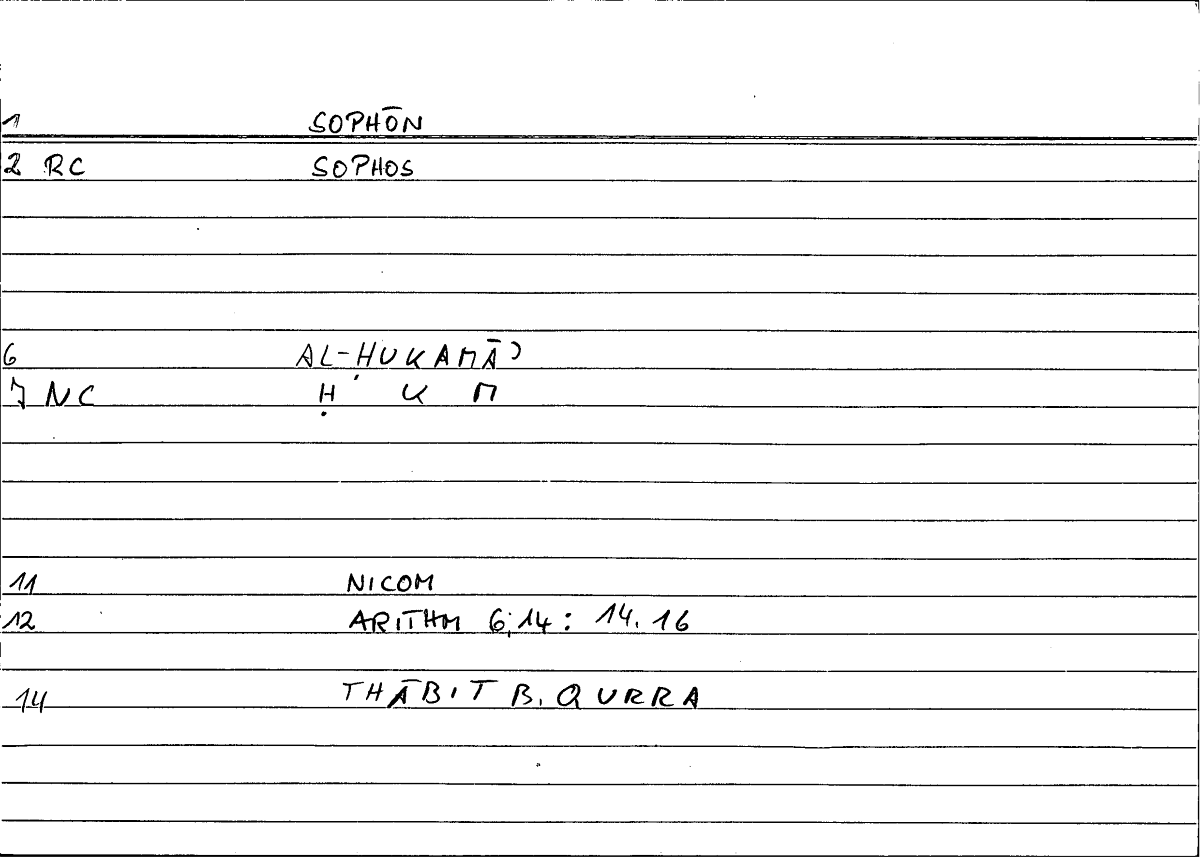 1 SOPHŌN
2 RC SOPHOS
6 AL-ḤUKAMĀʾ
7 NC Ḥ K M
11 NICOM
12 ARITHM 6,14 : 14.16
14 THĀBIT B. QURRA